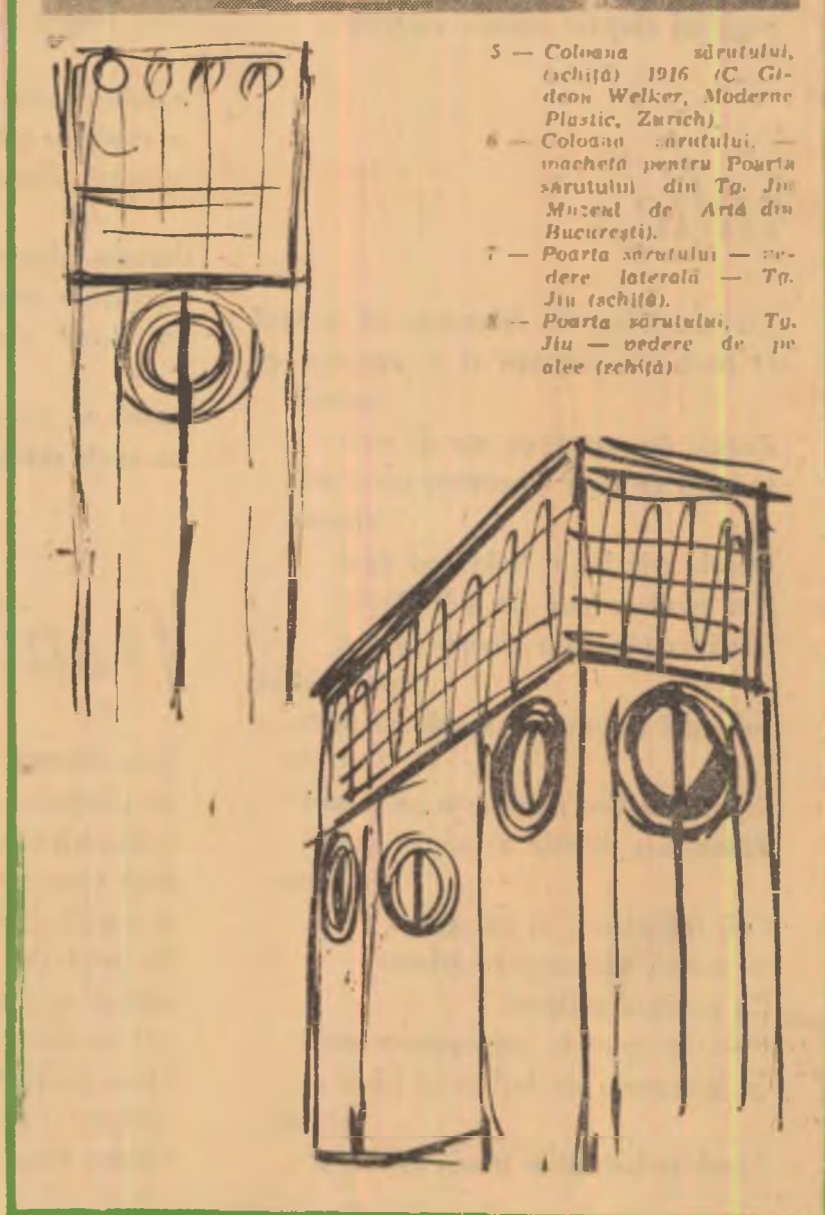 5 — Coloana sărutului,
(schiţă) 1916 (C. Gi-
deon Welker, Moderne
Plastic, Zurich)
6 — Coloana sărutului, —
macheta pentru Poarta
sărutului din Tg. Jiu
Muzeul de Artă din
Bucureşti).
7 — Poarta sărutului — ve-
dere laterală — Tg.
Jiu (schiţă).
8 — Poarta sărutului, Tg.
Jiu — vedere de pe
alee (schiţă)